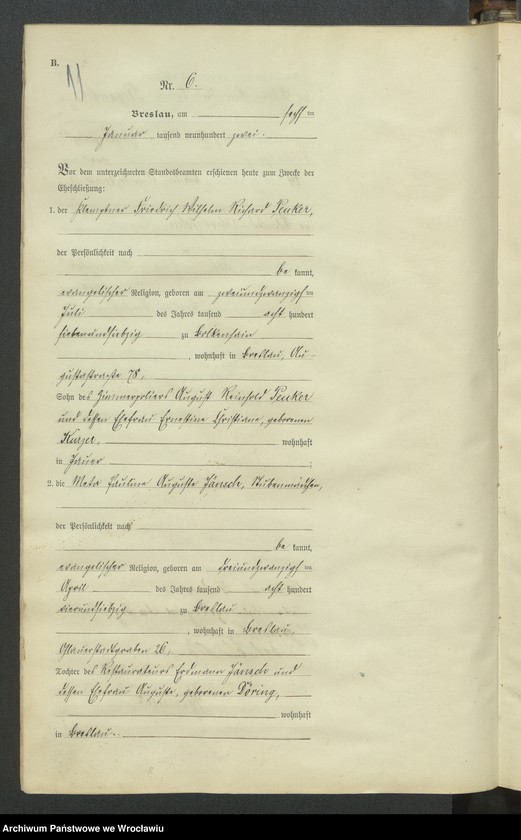 B.
11
Nr. 6.
Breslau, am sechsten
Januar tausend neunhundert zwei.
Vor dem unterzeichneten Standesbeamten erschienen heute zum Zwecke der
Eheschließung:
1. der Klempner Friedrich Wilhelm Richard Peuker,
der Persönlichkeit nach
be kannt,
evangelischer Religion, geboren am zweiundzwanzigsten
Juli des Jahres tausend acht hundert
siebenundsiebzig zu Bolkenhain
, wohnhaft in Breslau, Au-
gustastraße 78,
Sohn des Zimmerpoliers August Reinhold Peuker
und dessen Ehefrau Ernestine Christiane, geborenen
wohnhaft
in Jauer ;
2. die Meta Pauline Auguste Jänsch, Stubenmädchen,
der Persönlichkeit nach
be kannt,
evangelischer Religion, geboren am dreiundzwanzigsten
April des Jahres tausend acht hundert
vierundsiebzig zu Breslau
, wohnhaft in Breslau,
Ohlauerstadtgraben 26,
Tochter des Restaurateurs Erdmann Jänsch und
dessen Ehefrau Auguste, geborenen Döring,
wohnhaft
in Breslau.
Archiwum Państwowe we Wrocławiu